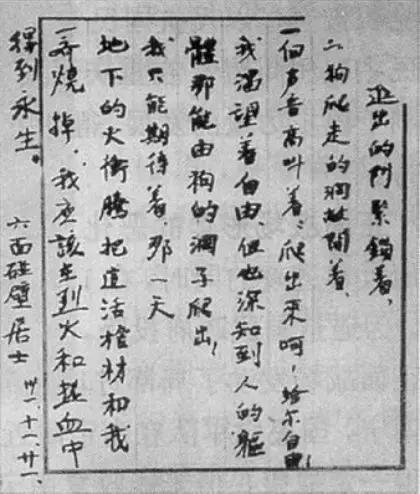 进出的門紧鎖着,
狗爬走的洞敞開着、
一個声音高叫着:爬出来呵!給尔自由!
我渴望着自由但也深知到人的軀
體那能由狗的洞子爬出!
我只能期待着、那一天
地下的火衝騰把這活棺材和我
一齊燒掉,我应該在烈火和热血中
得到永生。
六面碰壁居士 卅一、十一、廿一.